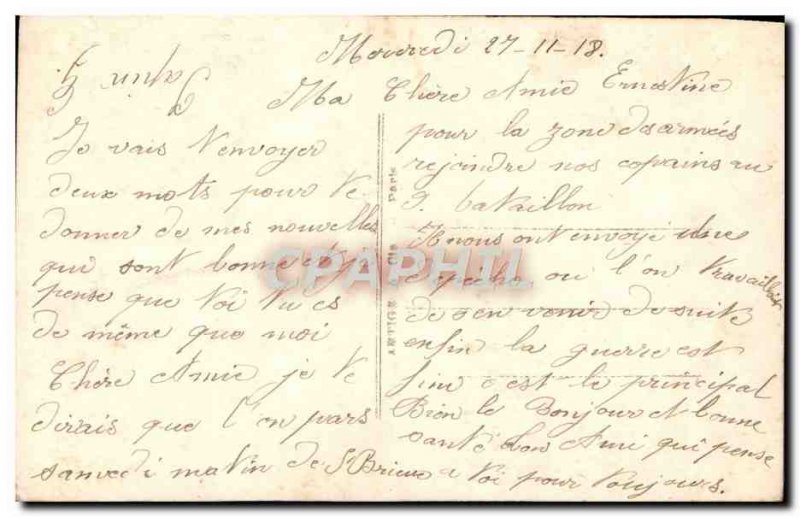 Mercredi 27-11-18.
Ma Chère Amie Ernestine
Je vais t'envoyer
deux mots pour te
donner de mes nouvelles
qui sont bonne et j'
pense que toi tu es
de même que moi
Chère Amie je te
dirais que l'on pars
samedi matin de St Brieuc
pour la zone des armées
rejoindre nos copains au
9. bataillon
Il nous ont envoyé une
ou l'on travaillait
de s'en venir de suite
enfin la guerre est
fini c'est le principal
Bien le Bonjour et bonne
santé bon Ami qui pense
a toi pour toujours.
Paris
CPAPHIL